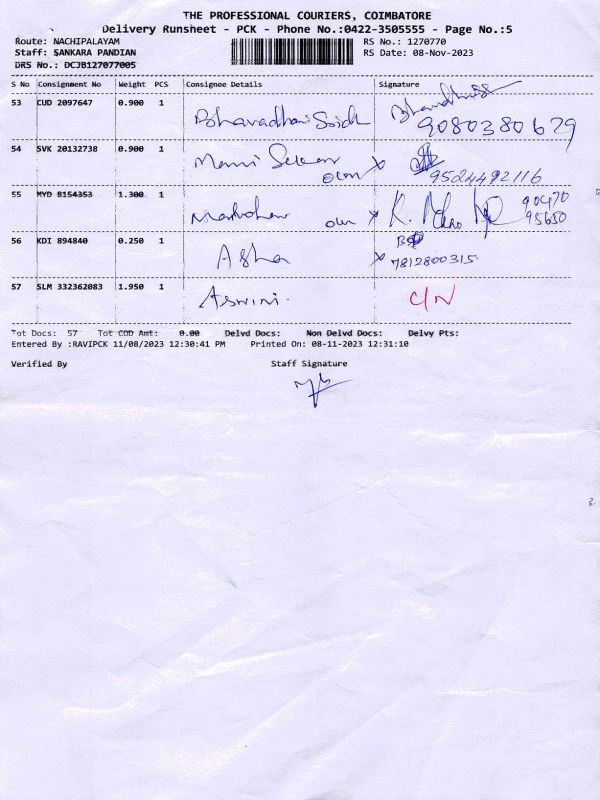 THE PROFESSIONAL COURIERS, COIMBATORE
Delivery Runsheet - PCK - Phone No.:0422-3505555 - Page No.:5
Route: NACHIPALAYAM RS No.: 1270770
Staff: SANKARA PANDIAN RS Date: 08-Nov-2023
DRS No.: DCJB127077005
S No Consignment No Weight PCS Consignee Details Signature
53 CUD 2097647 0.900 1
9080380629
54 SVK 20132738 0.900 1 Mani
9524492116
55 MYD 8154353 1.300 1 K. 90470
95650
56 KDI 894840 0.250 1 Asha
7812800315
57 SLM 332362083 1.950 1 Aswini. C/N
Tot Docs: 57 Tot COD Amt: 0.00 Delvd Docs: Non Delvd Docs: Delvy Pts:
Entered By :RAVIPCK 11/08/2023 12:30:41 PM Printed On: 08-11-2023 12:31:10
Verified By Staff Signature